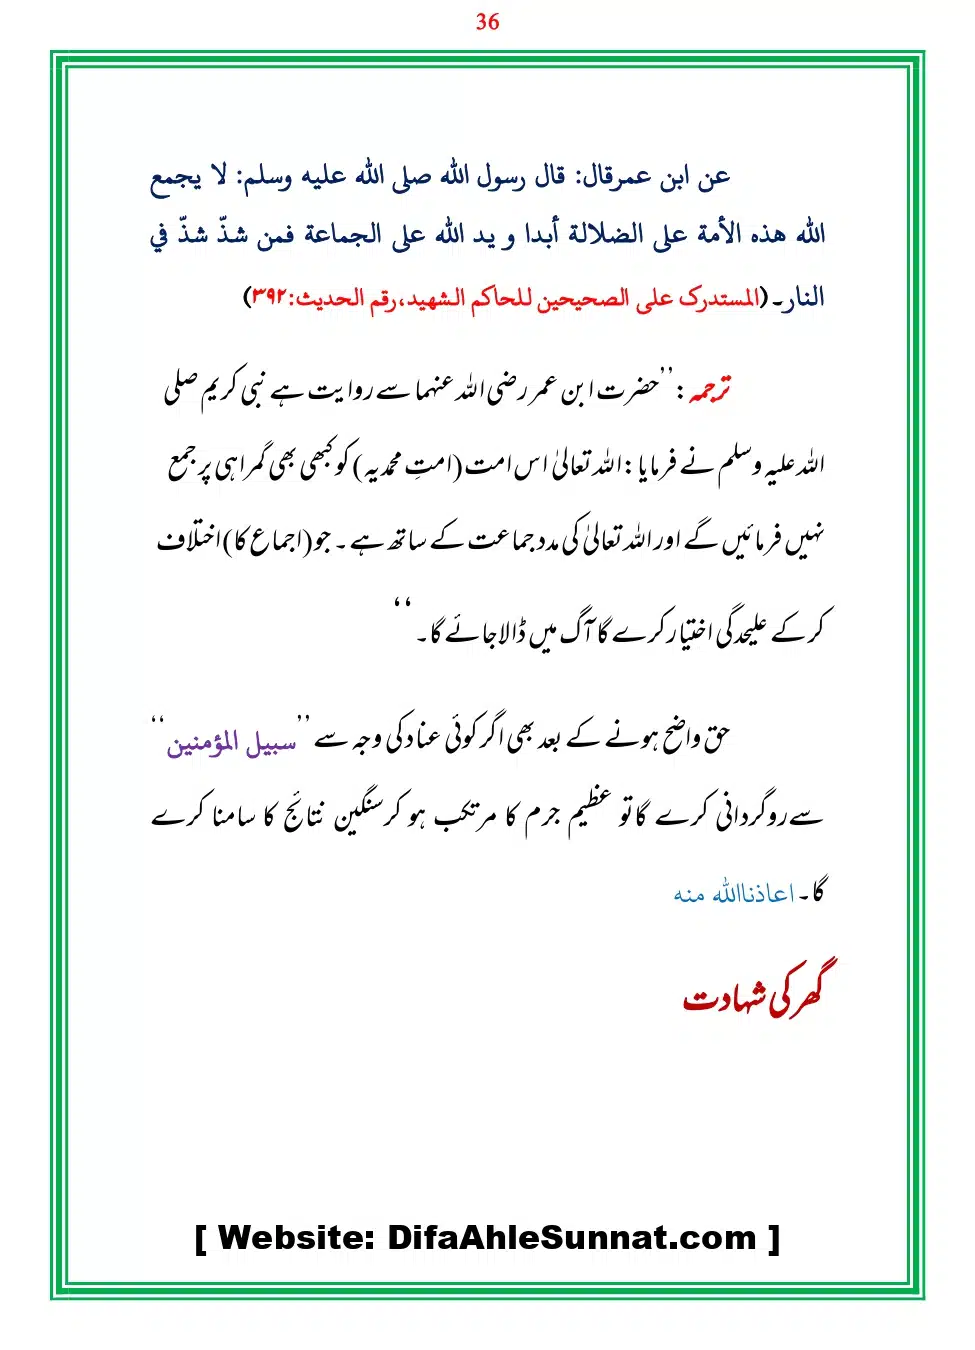 36
عن ابن عمرقال: قال رسول الله صلى الله عليه وسلم: لا يجمع
الله هذه الأمة على الضلالة أبدا و يد الله على الجماعة فمن شذّ شذّ في
النار۔ (المستدرک علی الصحیحین للحاکم الشهید،رقم الحدیث:۳۹۲)
ترجمہ: ’’حضرت ابن عمر رضی اللہ عنہما سے روایت ہے نبی کریم صلی
اللہ علیہ وسلم نے فرمایا: اللہ تعالیٰ اس امت (امتِ محمدیہ) کو کبھی بھی گمراہی پر جمع
نہیں فرمائیں گے اور اللہ تعالیٰ کی مدد جماعت کے ساتھ ہے۔ جو (اجماع کا) اختلاف
کر کے علیحدگی اختیار کرے گا آگ میں ڈالا جائے گا۔‘‘
حق واضح ہونے کے بعد بھی اگر کوئی عناد کی وجہ سے ’’سبیل المؤمنین‘‘
سے روگردانی کرے گا تو عظیم جرم کا مرتکب ہو کر سنگین نتائج کا سامنا کرے
گا۔ اعاذنااللہ منہ
گھر کی شہادت
[ Website: DifaAhleSunnat.com ]